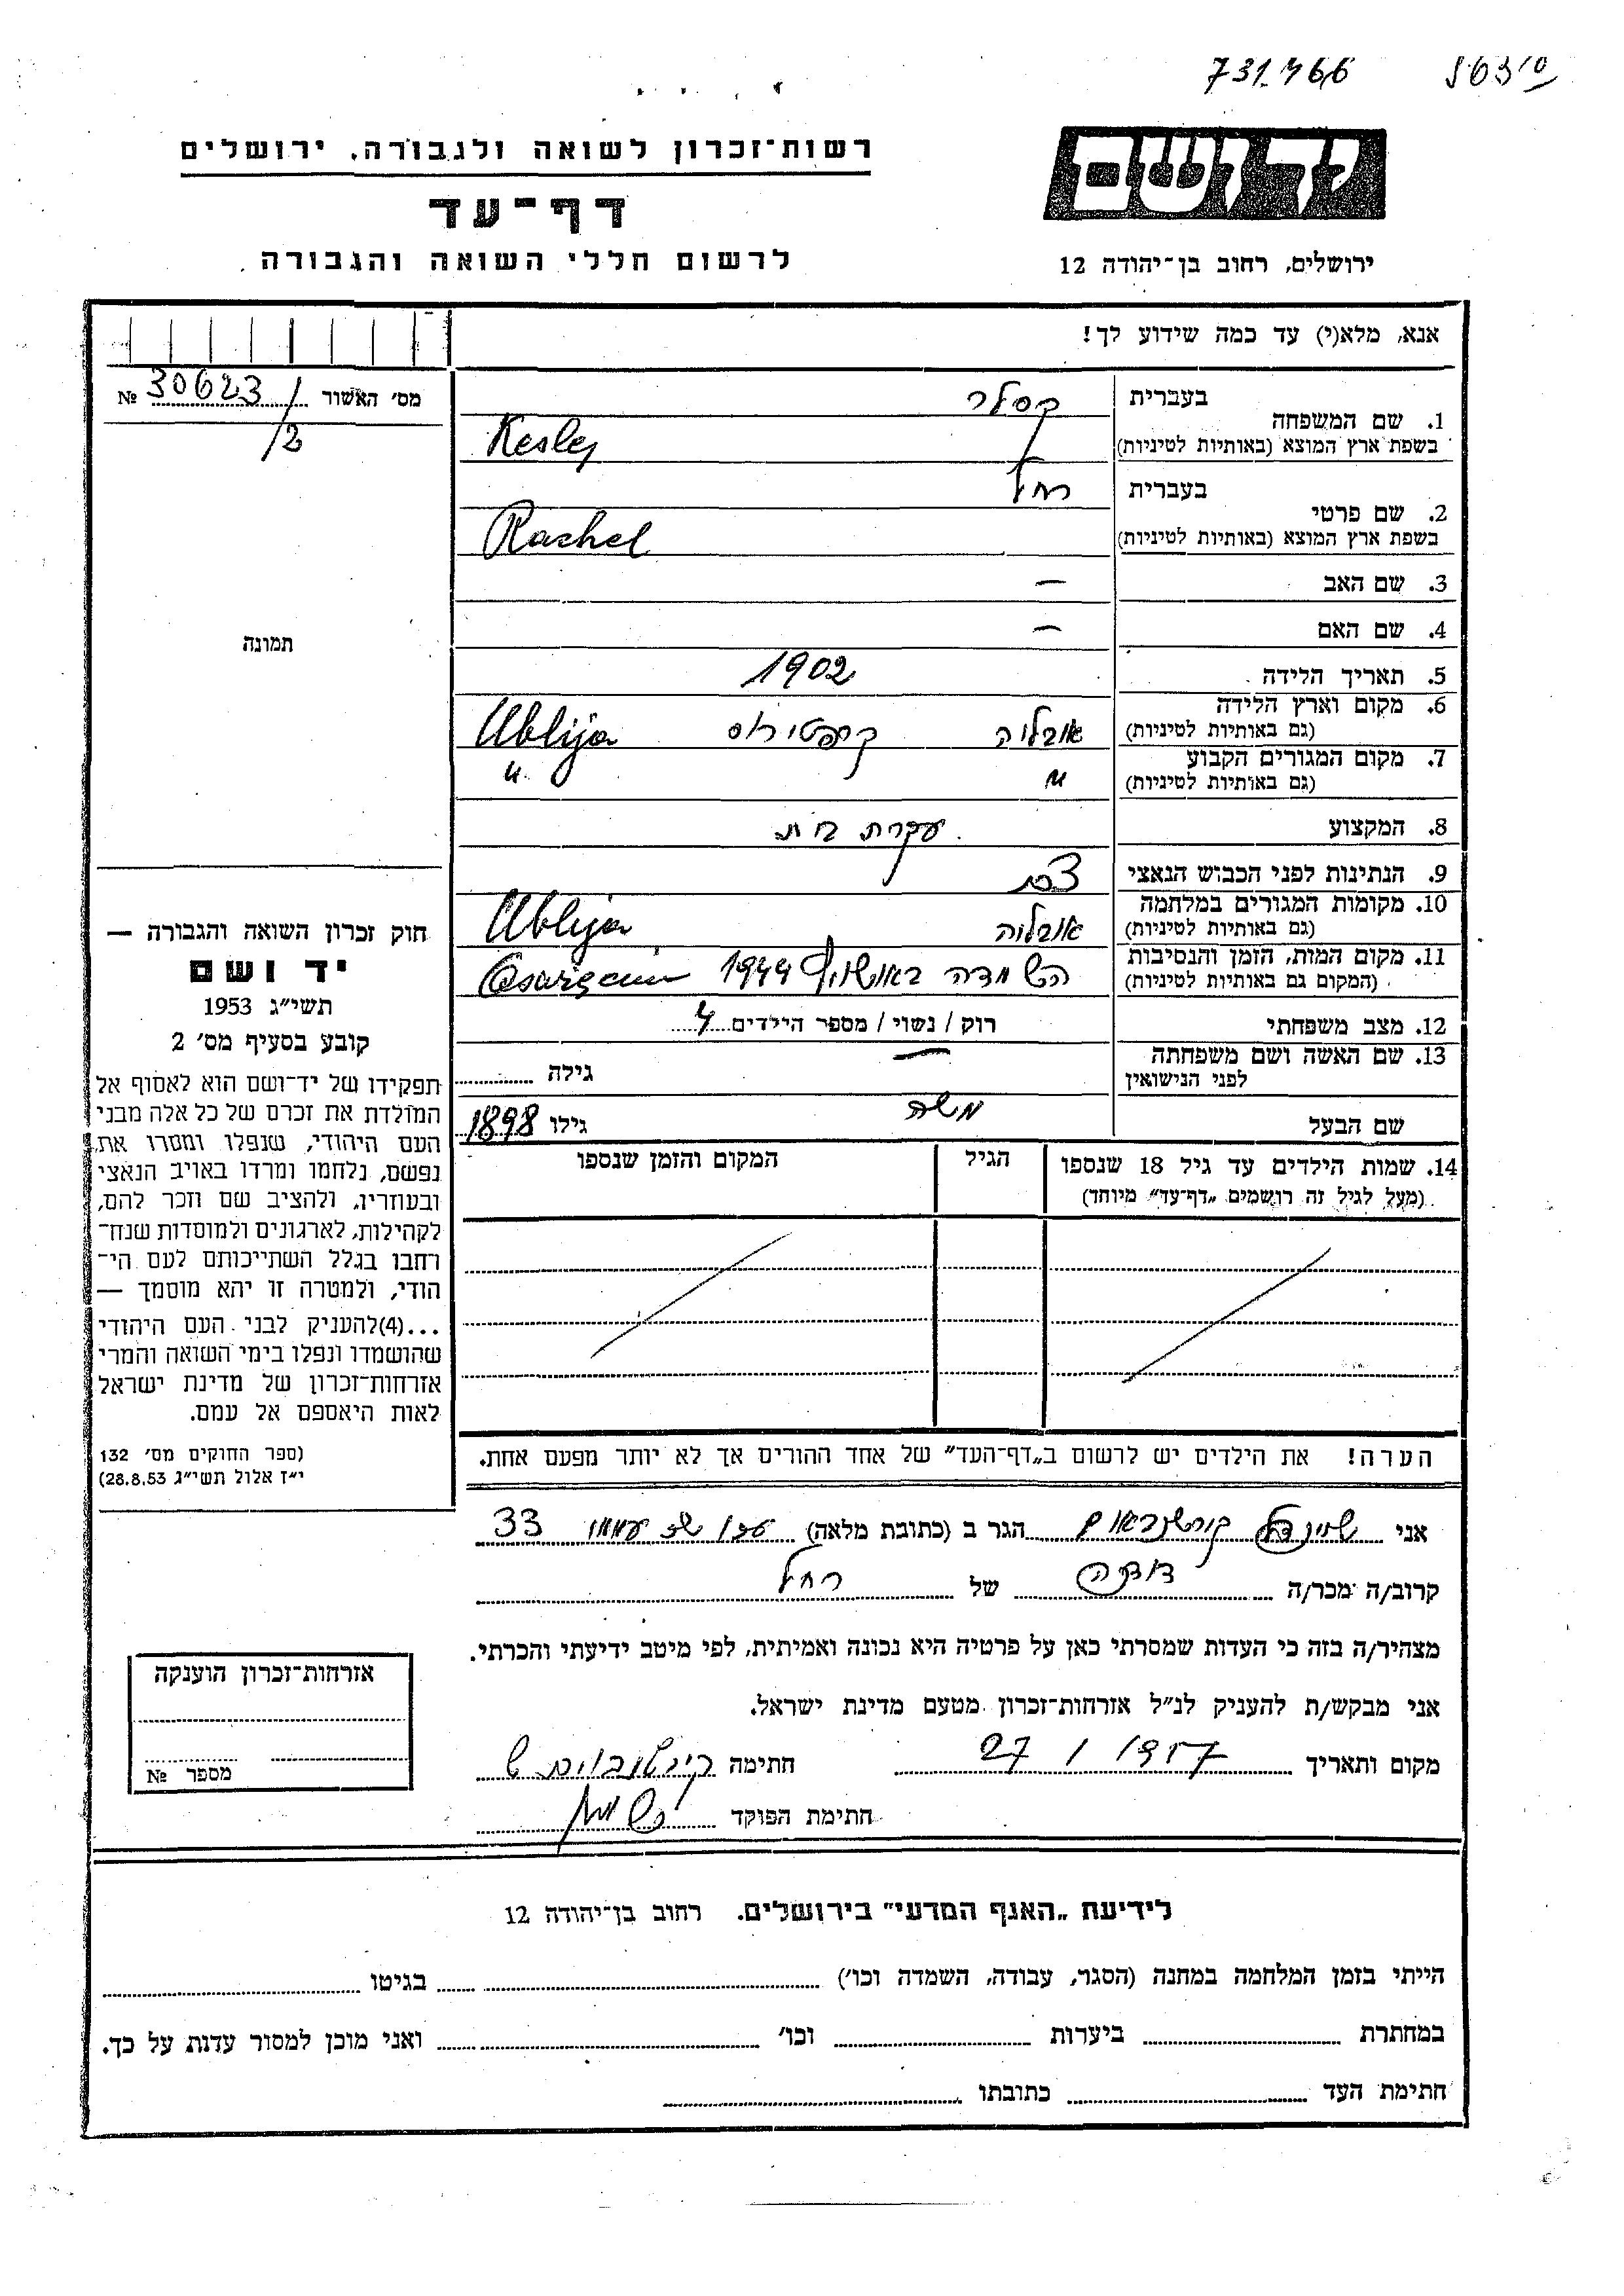 731.466 563/0
ידושם
ירושלים, רחוב בן־יהודה 12
רשות־זכרון לשואה ולגבורה, ירושלים
דף־עד
לרשום חללי השואה והגבורה
אנא, מלא(י) עד כמה שידוע לך!
מס׳ האשור 30623 №
/2
1. שם המשפחה
בעברית קסלר
בשפת ארץ המוצא (באותיות לטיניות) Kesler
2. שם פרטי
בעברית רחל
בשפת ארץ המוצא (באותיות לטיניות) Rachel
3. שם האב —
4. שם האם —
5. תאריך הלידה 1902
6. מקום וארץ הלידה אובליה Ublija
(גם באותיות לטיניות)
7. מקום המגורים הקבוע " "
(גם באותיות לטיניות)
8. המקצוע עקרת בית
9. הנתינות לפני הכבוש הנאצי צכית
10. מקומות המגורים במלחמה אובליה Ublija
(גם באותיות לטיניות)
11. מקום המות, הזמן והנסיבות הושמדה באושוויץ 1944
(המקום גם באותיות לטיניות)
12. מצב משפחתי רוק / נשוי / מספר הילדים 4
13. שם האשה ושם משפחתה — גילה
לפני הנישואין
שם הבעל משה גילו 1898
14. שמות הילדים עד גיל 18 שנספו הגיל המקום והזמן שנספו
(מעל לגיל זה רושמים „דף־עד״ מיוחד)
הערה! את הילדים יש לרשום ב„דף־העד״ של אחד ההורים אך לא יותר מפעם אחת.
תמונה
חוק זכרון השואה והגבורה —
יד ושם
תשי״ג 1953
קובע בסעיף מס׳ 2
תפקידו של יד־ושם הוא לאסוף אל
המולדת את זכרם של כל אלה מבני
העם היהודי, שנפלו ומסרו את
נפשם, נלחמו ומרדו באויב הנאצי
ובעוזריו, ולהציב שם וזכר להם,
לקהילות, לארגונים ולמוסדות שנח־
רחבו בגלל השתייכותם לעם הי־
הודי, ולמטרה זו יהא מוסמך —
...(4)להעניק לבני העם היהודי
שהושמדו ונפלו בימי השואה והמרי
אזרחות־זכרון של מדינת ישראל
לאות היאספם אל עמם.
(ספר החוקים מס׳ 132
י״ז אלול תשי״ג 28.8.53)
אני שיינדל קירשנבאום הגר ב (כתובת מלאה) 33
קרוב/ה מכר/ה דודה של רחל
מצהיר/ה בזה כי העדות שמסרתי כאן על פרטיה היא נכונה ואמיתית, לפי מיטב ידיעתי והכרתי.
אני מבקש/ת להעניק לנ״ל אזרחות־זכרון מטעם מדינת ישראל.
מקום ותאריך 27 / 1957 חתימה קירשנבוים ש
חתימת הפוקד
אזרחות־זכרון הוענקה
מספר №
לידיעת „האגף המדעי״ בירושלים. רחוב בן־יהודה 12
הייתי בזמן המלחמה במחנה (הסגר, עבודה, השמדה וכו׳) בגיטו
במחתרת ביערות וכו׳ ואני מוכן למסור עדות על כך.
חתימת העד כתובתו